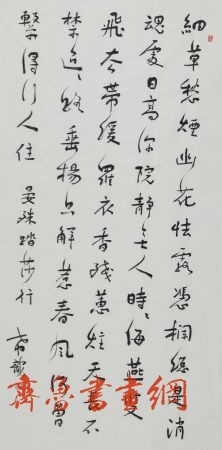 細草愁煙幽花怯露憑欄總是消
魂處日高深院靜无人時々海燕雙
飛去帶緩羅衣香殘蕙炷天長不
禁迢々路垂楊只解惹春風何曾
繫得行人住 晏殊踏莎行
齊魯書畫網